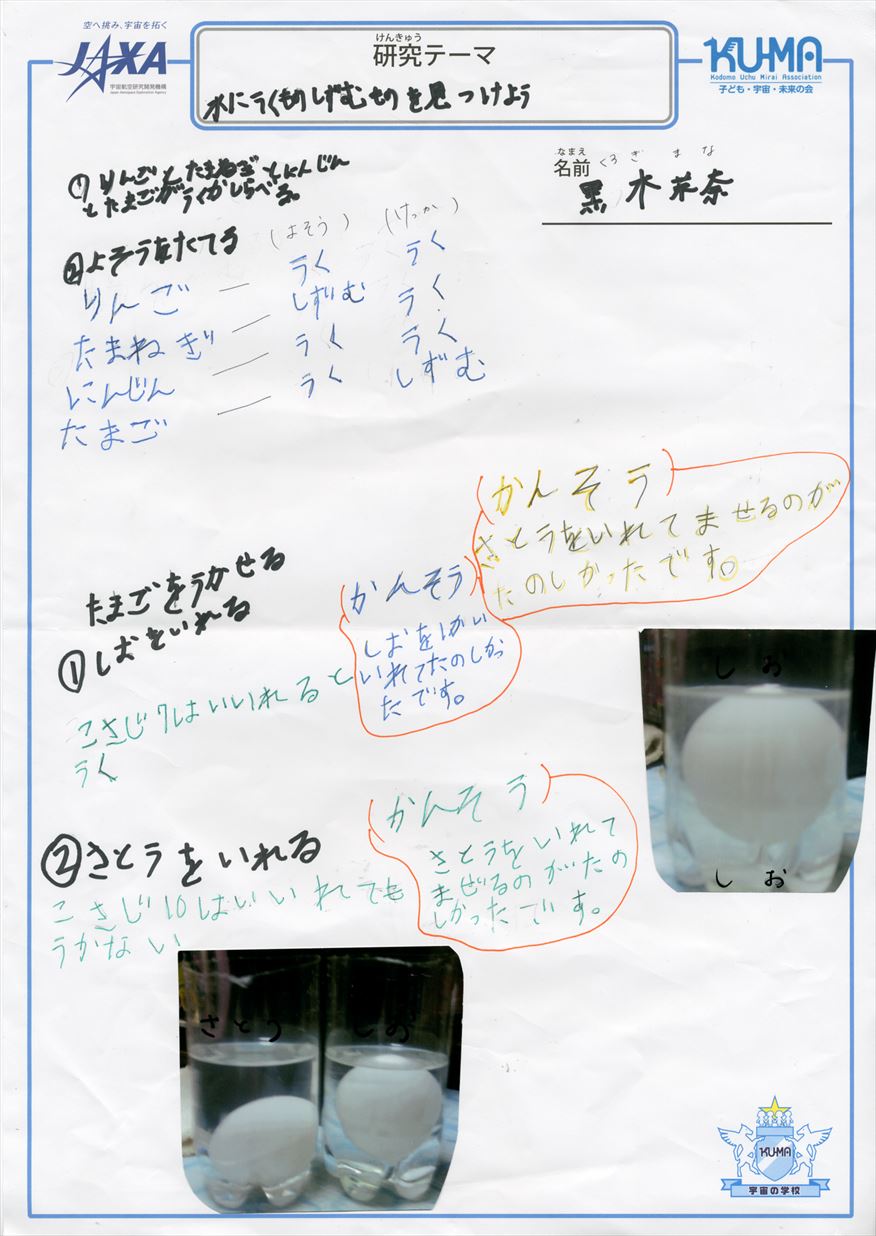 空へ挑み、宇宙を拓く
JAXA
宇宙航空研究開発機構
Japan Aerospace Exploration Agency
けんきゅう
研究テーマ
水にうくものしずむものを見つけよう
KU-MA
Kodomo Uchu Mirai Association
子ども・宇宙・未来の会
なまえ
名前
くろ ぎ ま な
黒木茉奈
① りんごとたまねぎとにんじん
とたまごがうくかしらべる。
②よそうをたてる
(よそう) (けっか)
りんご ー うく うく
たまねぎ ー しずむ うく
にんじん ー うく うく
たまご ー うく しずむ
(かんそう)
さとうをいれてませるのが
たのしかったです。
たまごをうかせる
①しおをいれる
こさじ7はいいれると
うく
(かんそう)
しおを
いれてたのしかっ
たです。
しお
しお
②さとうをいれる
こさじ10はいいれても
うかない
(かんそう)
さとうをいれて
まぜるのがたの
しかったです。
さとう
しお
KU-MA
宇宙の学校